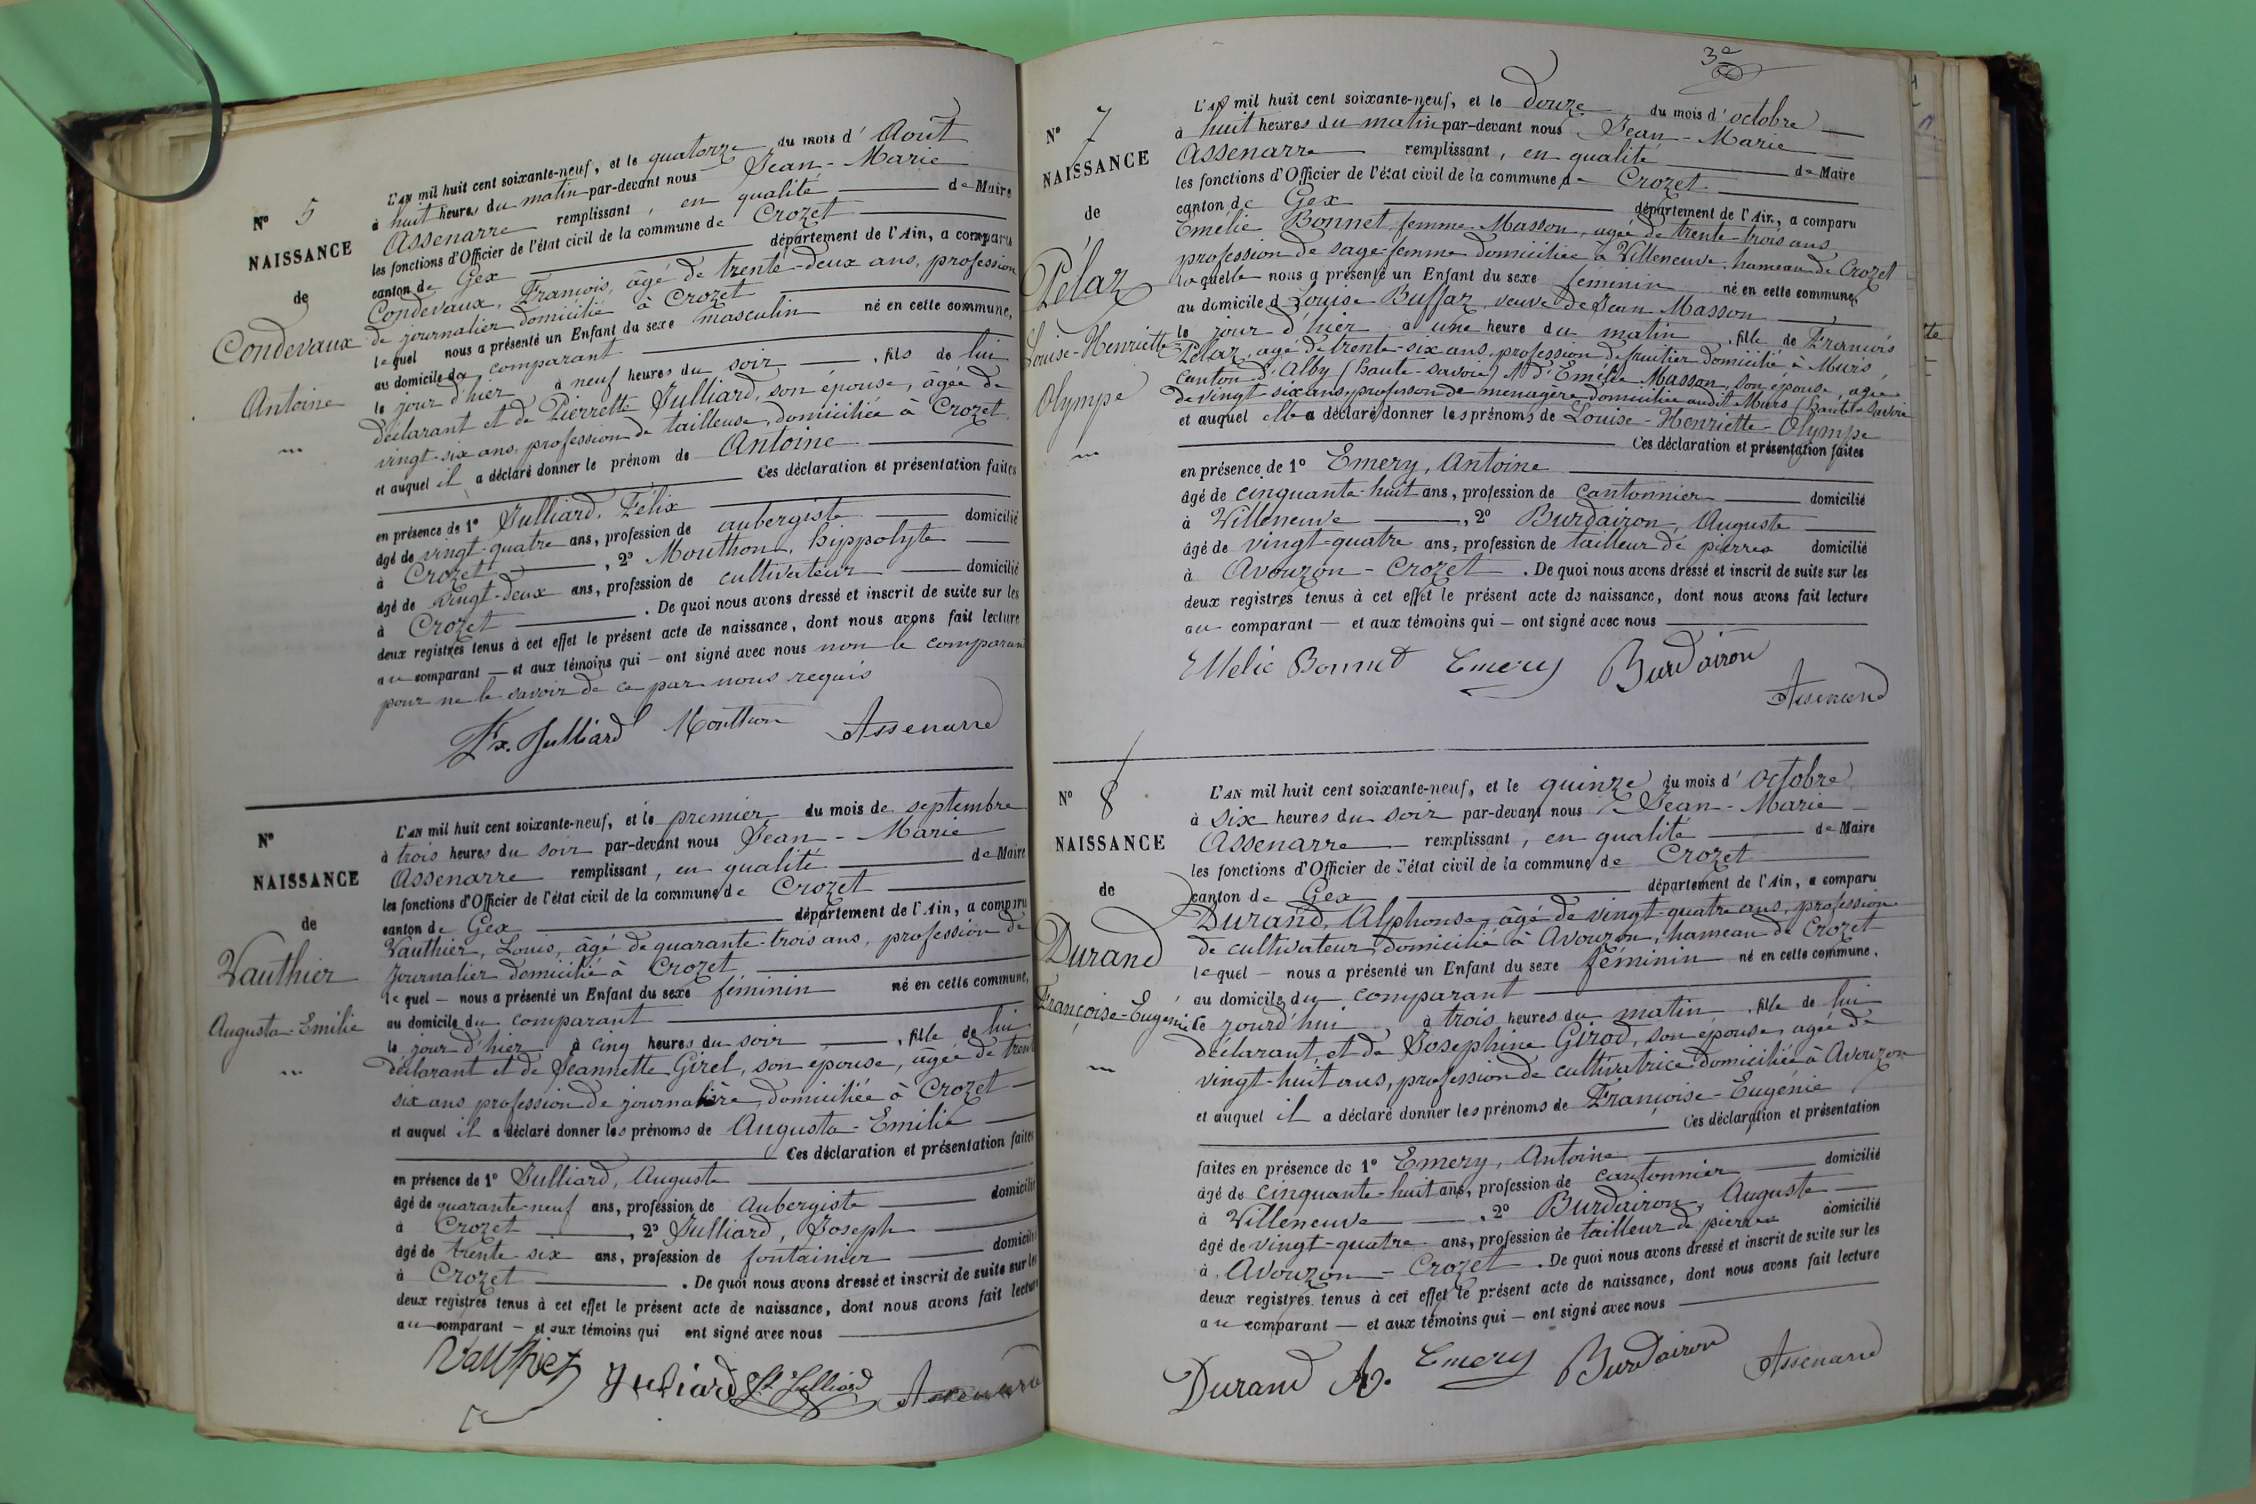 N° 5
NAISSANCE
de
Condevaux
Antoine
L'AN mil huit cent soixante-neuf, et le quatorze du mois d' Août
à huit heures du matin par-devant nous Jean-Marie
Assenarre remplissant, en qualité de Maire
les fonctions d'Officier de l'état civil de la commune de Crozet
canton de Gex département de l'Ain, a comparu
Condevaux, François, âgé de trente-deux ans, profession
de journalier domicilié à Crozet
lequel nous a présenté un Enfant du sexe masculin né en cette commune,
au domicile du comparant
le jour d'hier à neuf heures du soir, fils de lui
déclarant et de Pierrette Julliard, son épouse, âgée de
vingt-six ans, profession de tailleuse, domiciliée à Crozet
et auquel il a déclaré donner le prénom de Antoine
Ces déclaration et présentation faites
en présence de 1° Julliard, Félix
âgé de vingt-quatre ans, profession de aubergiste domicilié
à Crozet, 2° Mouthon, hippolyte
âgé de vingt-deux ans, profession de cultivateur domicilié
à Crozet. De quoi nous avons dressé et inscrit de suite sur les
deux registres tenus à cet effet le présent acte de naissance, dont nous avons fait lecture
au comparant — et aux témoins qui — ont signé avec nous non le comparant
pour ne le savoir de ce par nous requis
Fx. Julliard Mouthon Assenarre
N°
NAISSANCE
de
Vauthier
Augusta-Emilie
L'AN mil huit cent soixante-neuf, et le premier du mois de septembre
à trois heures du soir par-devant nous Jean-Marie
Assenarre remplissant, en qualité de Maire
les fonctions d'Officier de l'état civil de la commune de Crozet
canton de Gex département de l'Ain, a comparu
Vauthier, Louis, âgé de quarante-trois ans, profession de
journalier domicilié à Crozet
lequel — nous a présenté un Enfant du sexe féminin né en cette commune,
au domicile du comparant
le jour d'hier à cinq heures du soir, fille de lui
déclarant et de Jeannette Girel, son épouse, agée de trente
six ans profession de journalière, domiciliée à Crozet
et auquel il a déclaré donner les prénoms de Augusta-Emilie
Ces déclaration et présentation faites
en présence de 1° Julliard, Auguste
âgé de quarante-neuf ans, profession de Aubergiste domicilié
à Crozet, 2° Julliard, Joseph
âgé de trente-six ans, profession de fontainier domicilié
à Crozet. De quoi nous avons dressé et inscrit de suite sur les
deux registres tenus à cet effet le présent acte de naissance, dont nous avons fait lecture
au comparant — et aux témoins qui ont signé avec nous
Vauthier Juliard Julliard Assenarre
3e
N° 7
NAISSANCE
de
Pélaz
Louise-Henriette
Olympe
L'AN mil huit cent soixante-neuf, et le douze du mois d'octobre
à huit heures du matin par-devant nous Jean-Marie
Assenarre remplissant, en qualité de Maire
les fonctions d'Officier de l'état civil de la commune de Crozet
canton de Gex département de l'Ain, a comparu
Emélie Bonnet, femme Masson, agée de trente-trois ans
profession de sage-femme domiciliée à Villeneuve, hameau de Crozet
laquelle nous a présenté un Enfant du sexe féminin né en cette commune,
au domicile d Louise Buffaz, veuve de Jean Masson
le jour d'hier à une heure du matin, fille de François
Pélaz, agé de trente-six ans, profession de fruitier domicilié à Murs,
canton d'Alby (haute-savoie) et d'Emélie Masson, son épouse, agée
de vingt-six ans, profession de ménagère domiciliée audit Murs (haute-Savoie
et auquel elle a déclaré donner les prénoms de Louise-Henriette-Olympe
Ces déclaration et présentation faites
en présence de 1° Emery, Antoine
âgé de cinquante-huit ans, profession de cantonnier domicilié
à Villeneuve, 2° Burdairon, Auguste
âgé de vingt-quatre ans, profession de tailleur de pierres domicilié
à Avouzon-Crozet. De quoi nous avons dressé et inscrit de suite sur les
deux registres tenus à cet effet le présent acte de naissance, dont nous avons fait lecture
au comparant — et aux témoins qui — ont signé avec nous
Mélie Bonnet Emery Burdairon
Assenarre
N° 8
NAISSANCE
de
Durand
Françoise-Eugénie
L'AN mil huit cent soixante-neuf, et le quinze du mois d' Octobre
à six heures du soir par-devant nous Jean-Marie
Assenarre remplissant, en qualité de Maire
les fonctions d'Officier de l'état civil de la commune de Crozet
canton de Gex département de l'Ain, a comparu
Durand, Alphonse, âgé de vingt-quatre ans, profession
de cultivateur, domicilié à Avouzon, hameau de Crozet
lequel — nous a présenté un Enfant du sexe féminin né en cette commune,
au domicile du comparant
le jourd'hui à trois heures du matin, fille de lui
déclarant, et de Josephine Girod, son épouse, agée de
vingt-huit ans, profession de cultivatrice domiciliée à Avouzon
et auquel il a déclaré donner les prénoms de Françoise-Eugénie
Ces déclaration et présentation
faites en présence de 1° Emery, Antoine
âgé de cinquante-huit ans, profession de cantonnier domicilié
à Villeneuve, 2° Burdairon, Auguste
âgé de vingt-quatre ans, profession de tailleur de pierres domicilié
à Avouzon-Crozet. De quoi nous avons dressé et inscrit de suite sur les
deux registres tenus à cet effet le présent acte de naissance, dont nous avons fait lecture
au comparant — et aux témoins qui — ont signé avec nous
Durand A. Emery Burdairon Assenarre